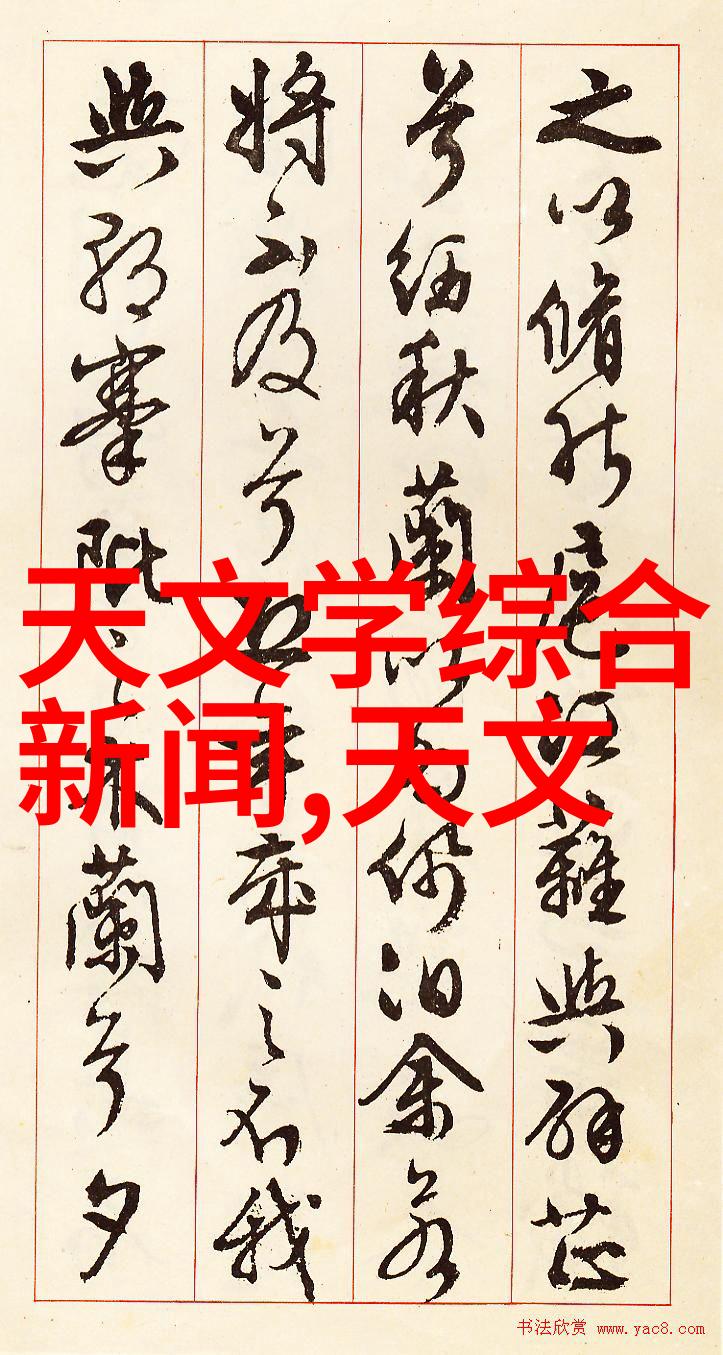 之以脩能扈江離與辟芷
兮紉秋蘭以為佩汩余若
將不及兮恐年歲之不我
與朝搴阰之木蘭兮夕
天文学综合
新闻,天文
书法欣赏 www.yac8.com